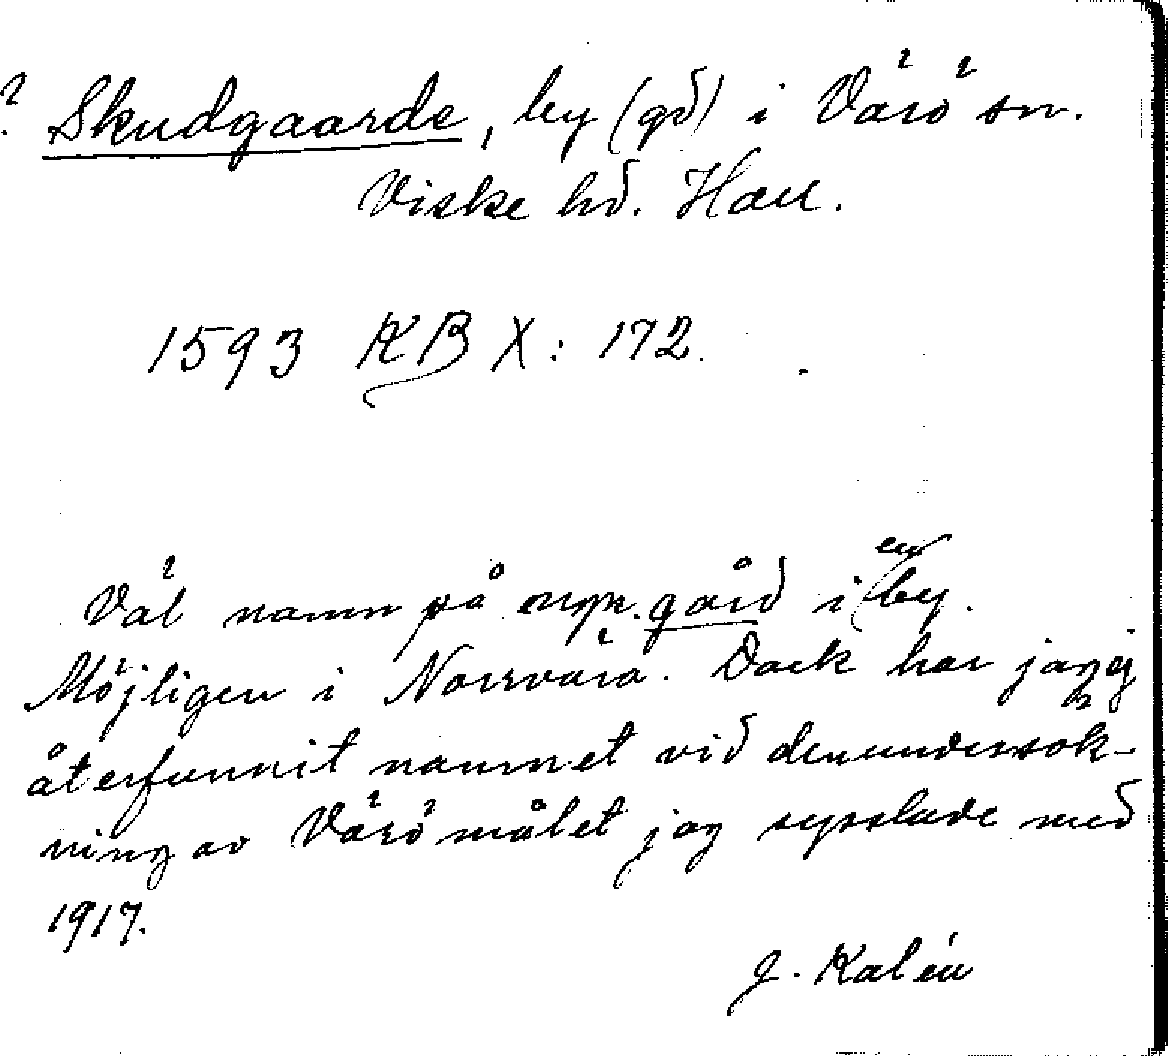 ? Skudgaarde, by (gd) i Värö sn.
Viske hd. Hall.
1593 KB X: 172.
Väl namn på gård i en by.
Möjligen i Norrvära. Dock har jag ej
återfunnit namnet vid den undersök-
ning av Värömålet jag sysslade med
1917.
J. Kalén